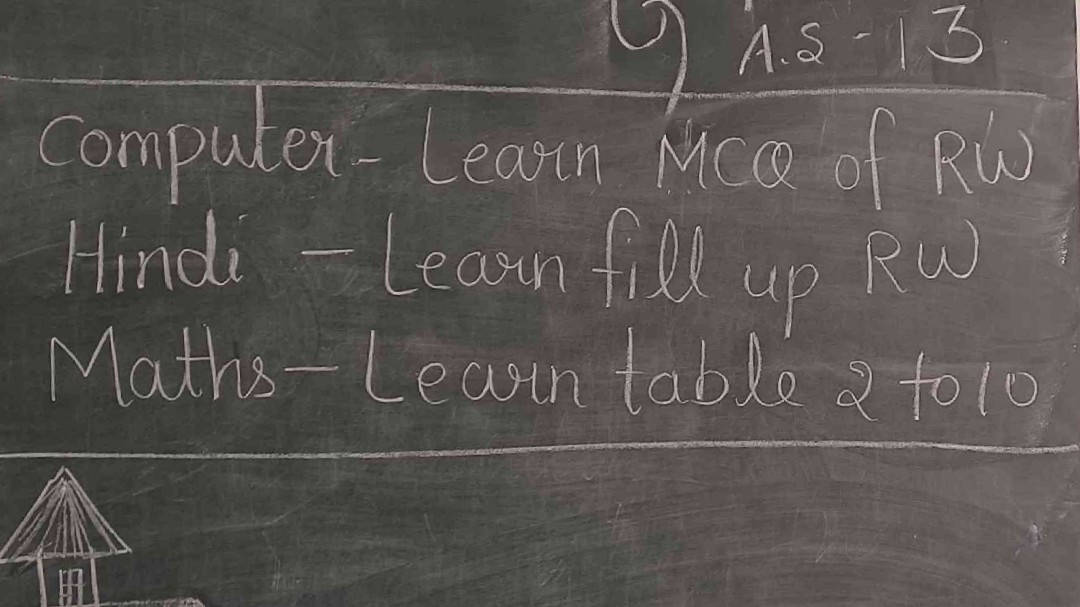 A.S - 13
Computer - Learn MCQ of RW
Hindi - Learn fill up RW
Maths - Learn table 2 to 10